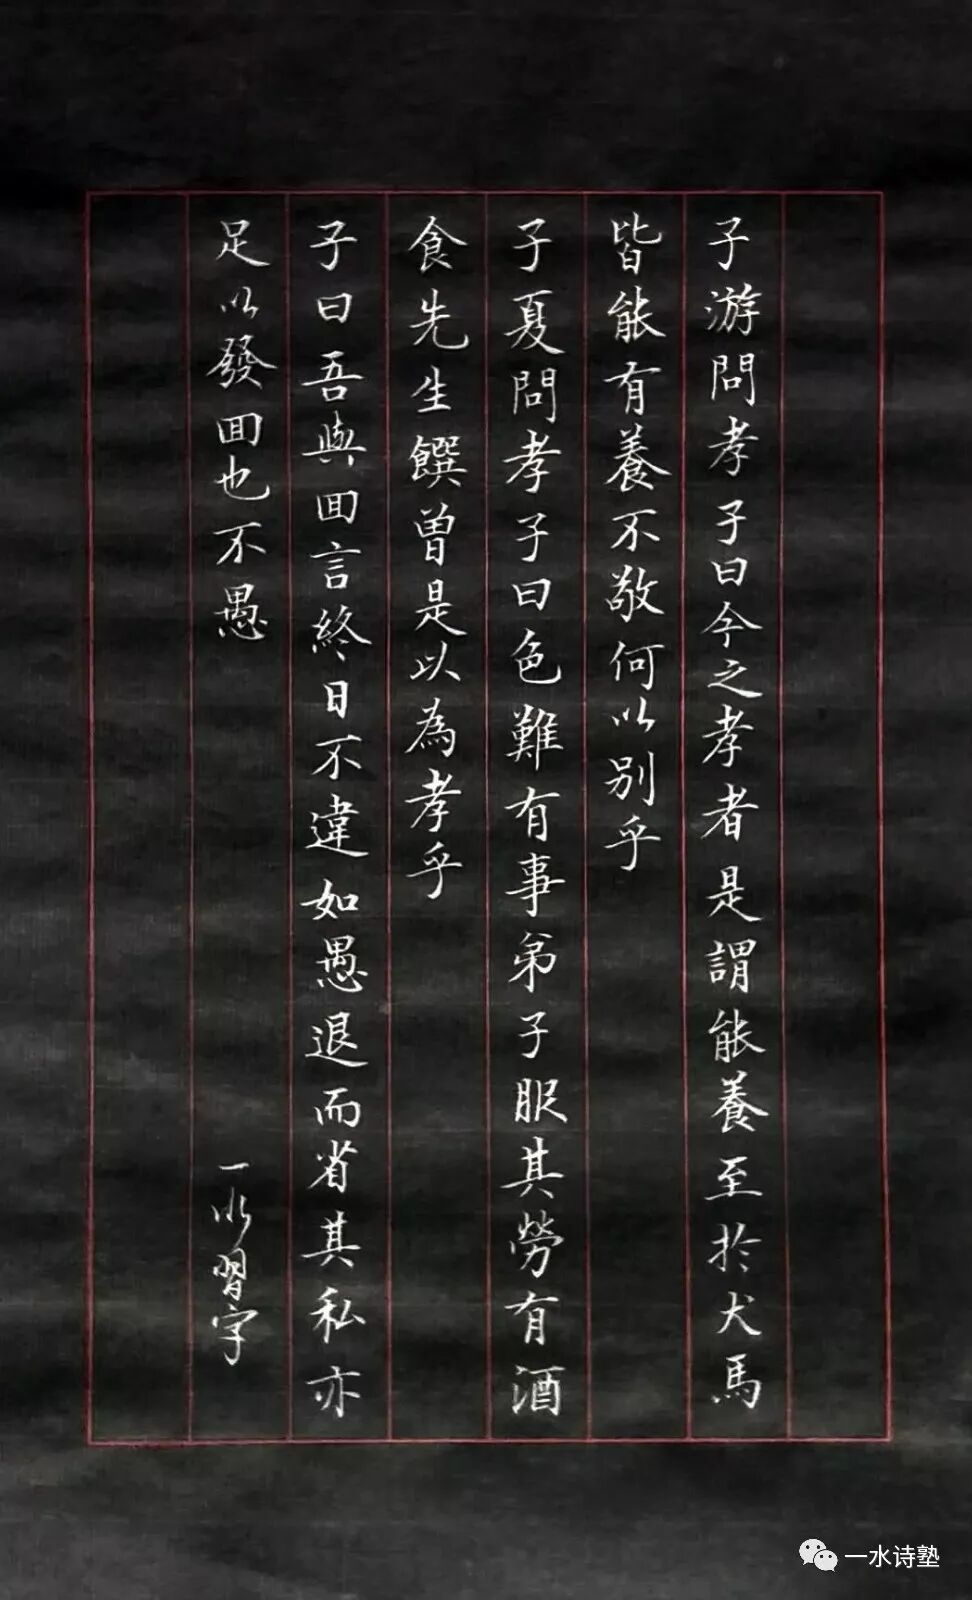 子游問孝子曰今之孝者是謂能養至於犬馬
皆能有養不敬何以別乎
子夏問孝子曰色難有事弟子服其勞有酒
食先生饌曾是以為孝乎
子曰吾與回言終日不違如愚退而省其私亦
足以發回也不愚
一水習字
一水诗塾